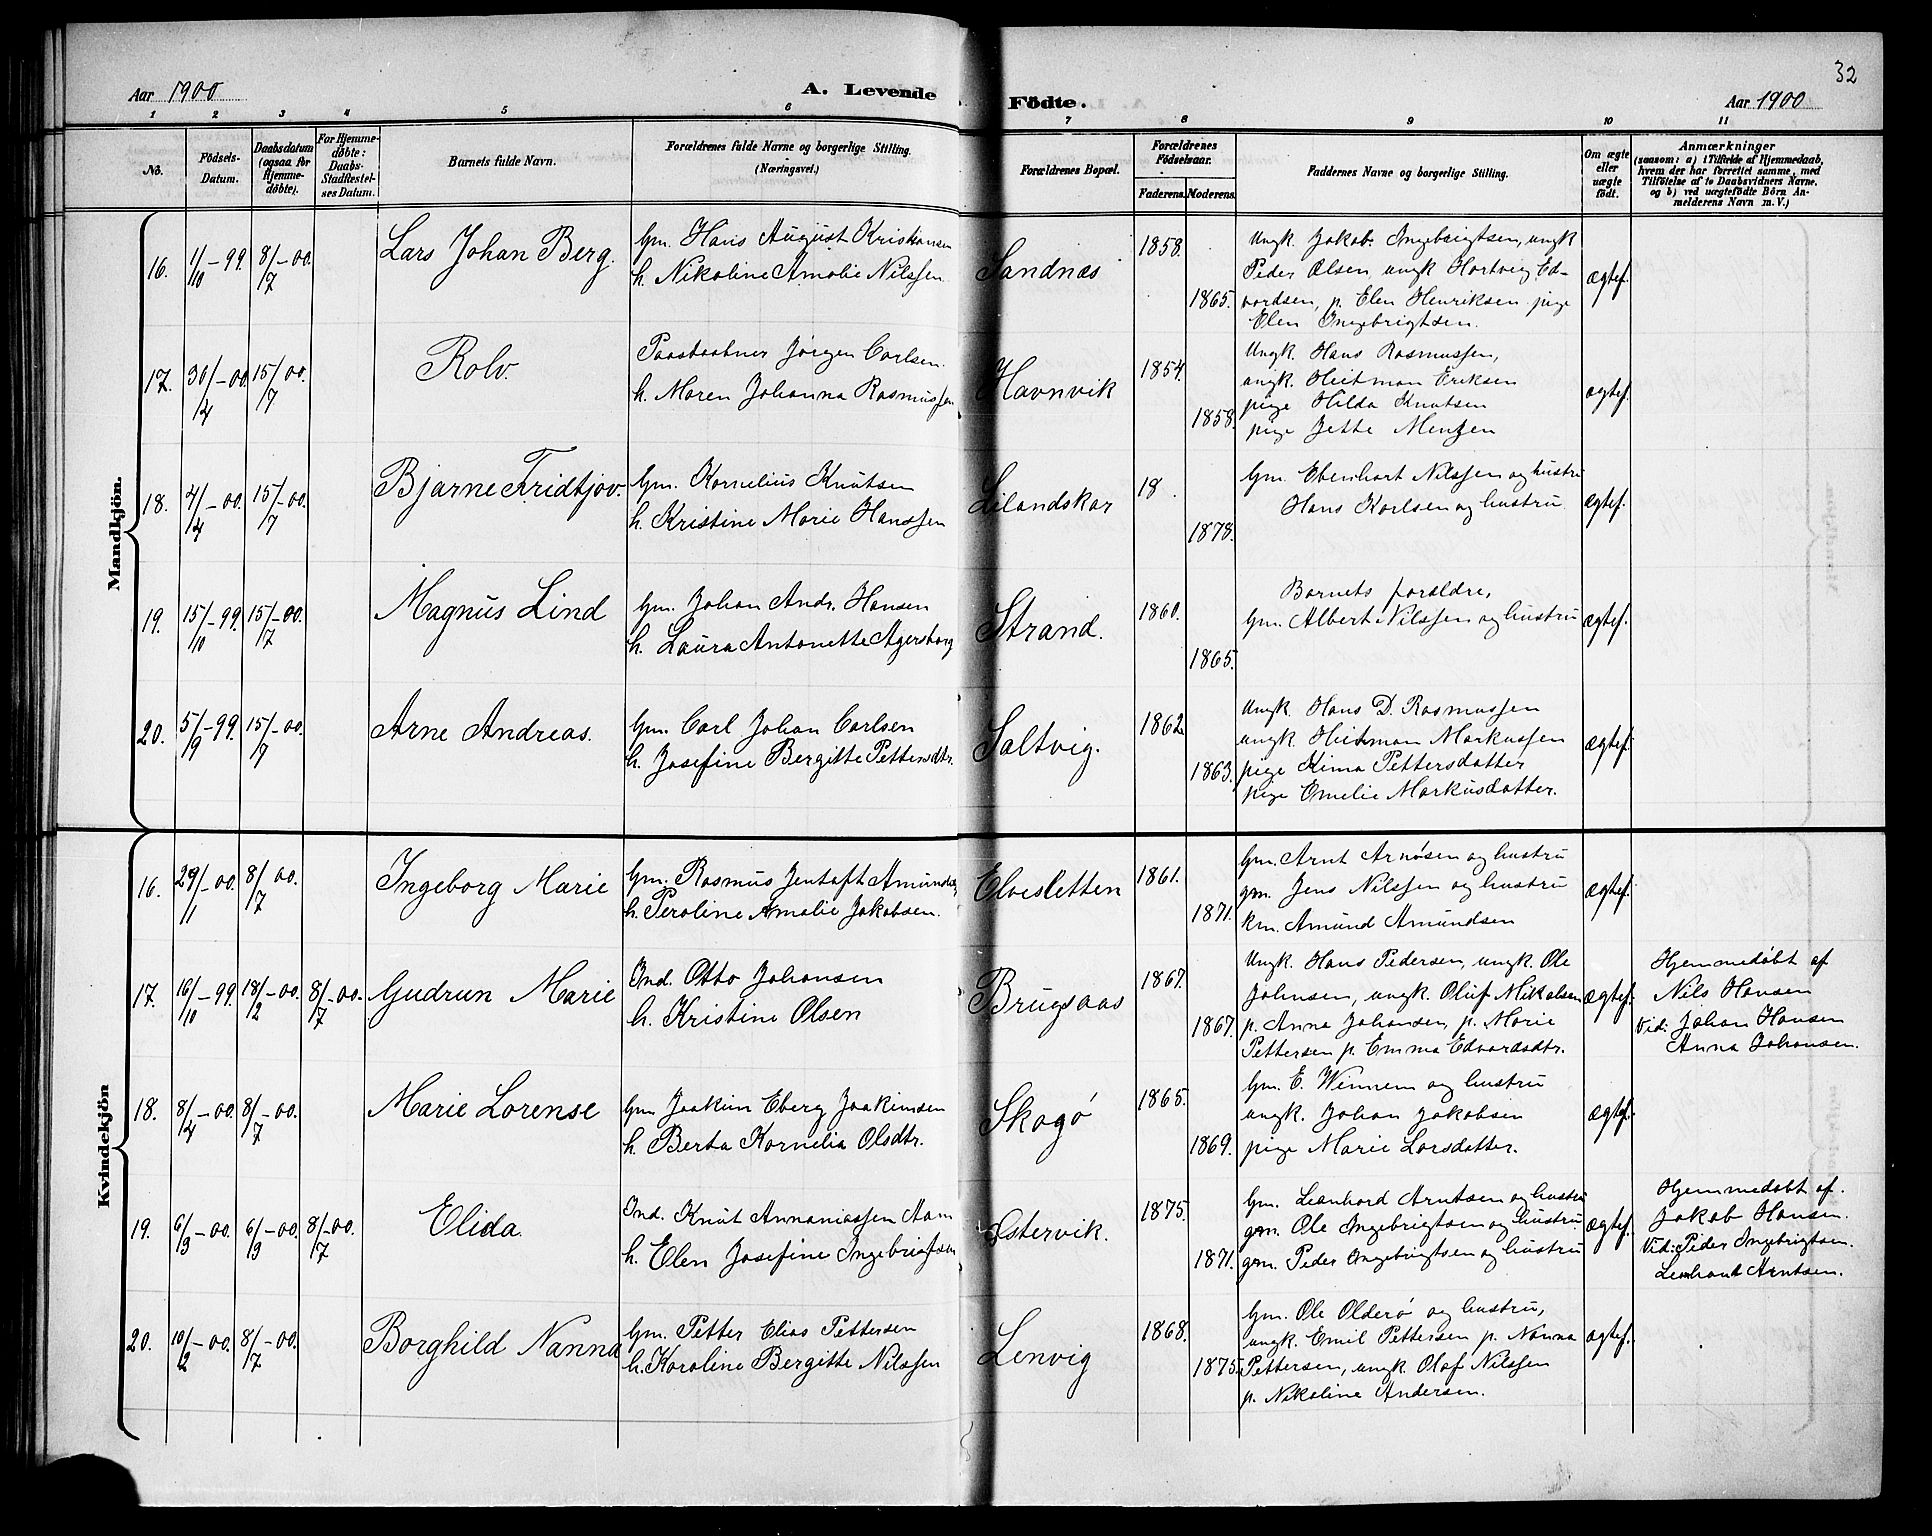 32
Aar 1900
A. Levende Födte.
Aar 1900
1 2 3 4 5 6 7 8 9 10 11
No.
Födsels-
Datum.
Daabsdatum
(ogsaa for
Hjemme-
döbte).
For Hjemme-
döbte:
Daabs-
Stadfæstel-
ses Datum.
Barnets fulde Navn.
Forældrenes fulde Navne og borgerlige Stilling.
(Næringsvei.)
Forældrenes Bopæl.
Forældrenes
Födselsaar.
Faderens. Moderens.
Faddernes Navne og borgerlige Stilling.
Om ægte
eller
uægte
födt.
Anmærkninger
(saasom: a) i Tilfælde af Hjemmedaab,
hvem der har forrettet samme, med
Tilföielse af to Daabsvidners Navne,
og b) ved uægtefödte Börn An-
melderens Navn m. V.)
Mandkjön.
16. 1/10-99. 8/7-00. Lars Johan Berg.
Gm. Hans August Kristiansen
h. Nikoline Amalie Nilssen
Sandnæs
1858.
1865.
Ungk. Jakob Ingebrigtsen, ungk
Peder Olsen, ungk Hartvig Ed-
vardsen, p. Elen Henriksen pige
Elen Ingebrigtsen.
ægtef.
17. 30/4-00. 15/7-00. Rolv.
Jørgen Carlsen.
h. Maren Johanna Rasmussen
Havnvik
1854.
1858.
Ungk. Hans Rasmussen,
ungk. Heitman Eriksen
pige Hilda Knutsen
pige Jette Menzen
ægtef.
18. 4/4-00. 15/7-00. Bjarne Fridtjov.
Gm. Kornelius Knutsen
h. Kristine Marie Hanssen
Lilandskar
18
1878.
Gm. Ebenhart Nilssen og hustru
Hans Karlsen og hustru
ægtef.
19. 15/10-99. 15/7-00. Magnus Lind
Gm. Johan Andr. Hansen
h. Laura Antonette Agersborg
Strand.
1860.
1865.
Barnets forældre,
Gm. Albert Nilssen og hustru
ægtef.
20. 5/9-99. 15/7-00. Arne Andreas.
Gm. Carl Johan Carlsen
h. Josefine Bergitte Pettersdtr.
Saltvig.
1862
1863.
Ungk. Hans D. Rasmussen
ungk. Heitman Markussen
pige Kima Pettersdatter
pige Emelie Markusdatter.
ægtef.
Kvindekjön
16. 29/11-00. 8/7-00. Ingeborg Marie
Gm. Rasmus Jentoft Amundsen
h. Peroline Amalie Jakobsen.
Elvesletten
1861.
1871.
Gm. Arnt Arnøsen og hustru
gm. Jens Nilssen og hustru
km. Amund Amundsen
ægtef.
17. 16/10-99. 18/2-00. 8/7-00. Gudrun Marie
Ind. Otto Johansen
h. Kristine Olsen
Brugsaas
1867.
1867.
Ungk. Hans Pedersen, ungk. Ole
Johnsen, ungk. Oluf Mikalsen
p. Anna Johansen, p. Marie
Pettersen p. Emma Edvardsdtr.
ægtef.
Hjemmedøbt af
Nils Hansen
Vid: Johan Hansen
Anna Johansen.
18. 8/4-00. 8/7-00. Marie Lorense
Gm Joakim Eberg Joakimsen
h. Berta Kornelia Olsdtr.
Skogø
1865.
1869.
Gm. E. Winnem og hustru
ungk. Johan Jakobsen
pige Marie Larsdatter.
ægtef.
19. 6/3-00. 6/3-00. 8/7-00. Elida.
Ind. Knut Annaniassen Aam
h. Elen Josefine Ingebrigtsen
Østervik.
1875.
1871.
Gm. Leonhard Arntsen og hustru
gm. Ole Ingebrigtsen og hustru
gm. Peder Ingebrigtsen og hustru
ægtef.
Hjemmedøbt af.
Jakob Hansen.
Vid: Peder Ingebrigtsen.
Lenhart Arntsen.
20. 10/2-00. 8/7-00. Borghild Nanna
Gm. Petter Elias Pettersen
h. Karoline Bergitte Nilssen
Lenvig
1868.
1875.
Gm. Ole Olderø og hustru,
ungk. Emil Pettersen p. Nanna
Pettersen, ungk. Olaf Nilssen
p. Nikoline Andersen.
ægtef.